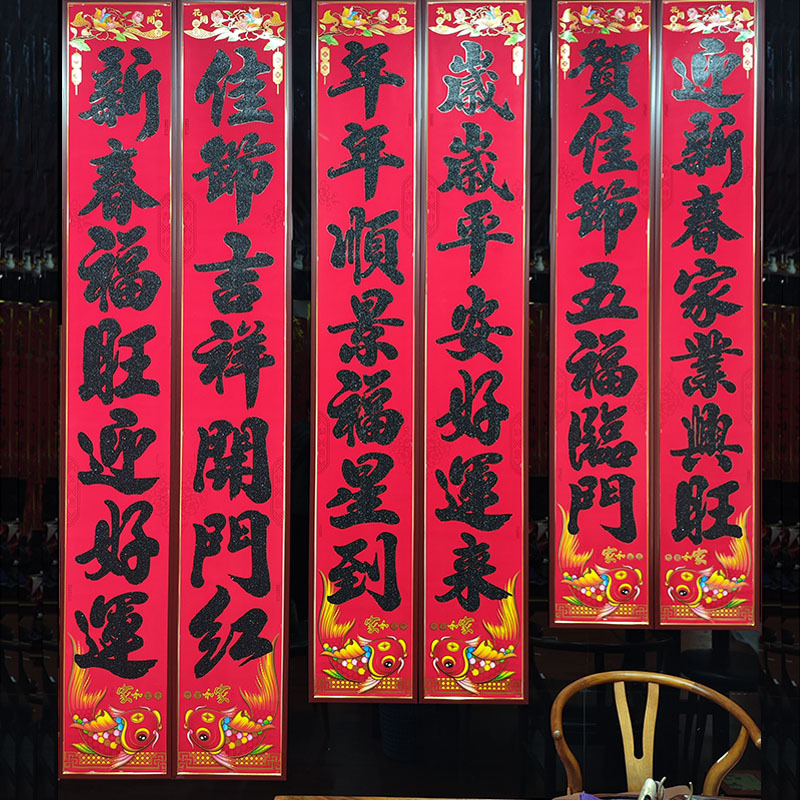 新春福旺迎好運
佳節吉祥開門红
年年順景福星到
歲歲平安好運来
賀佳節五福臨門
迎新春家業興旺